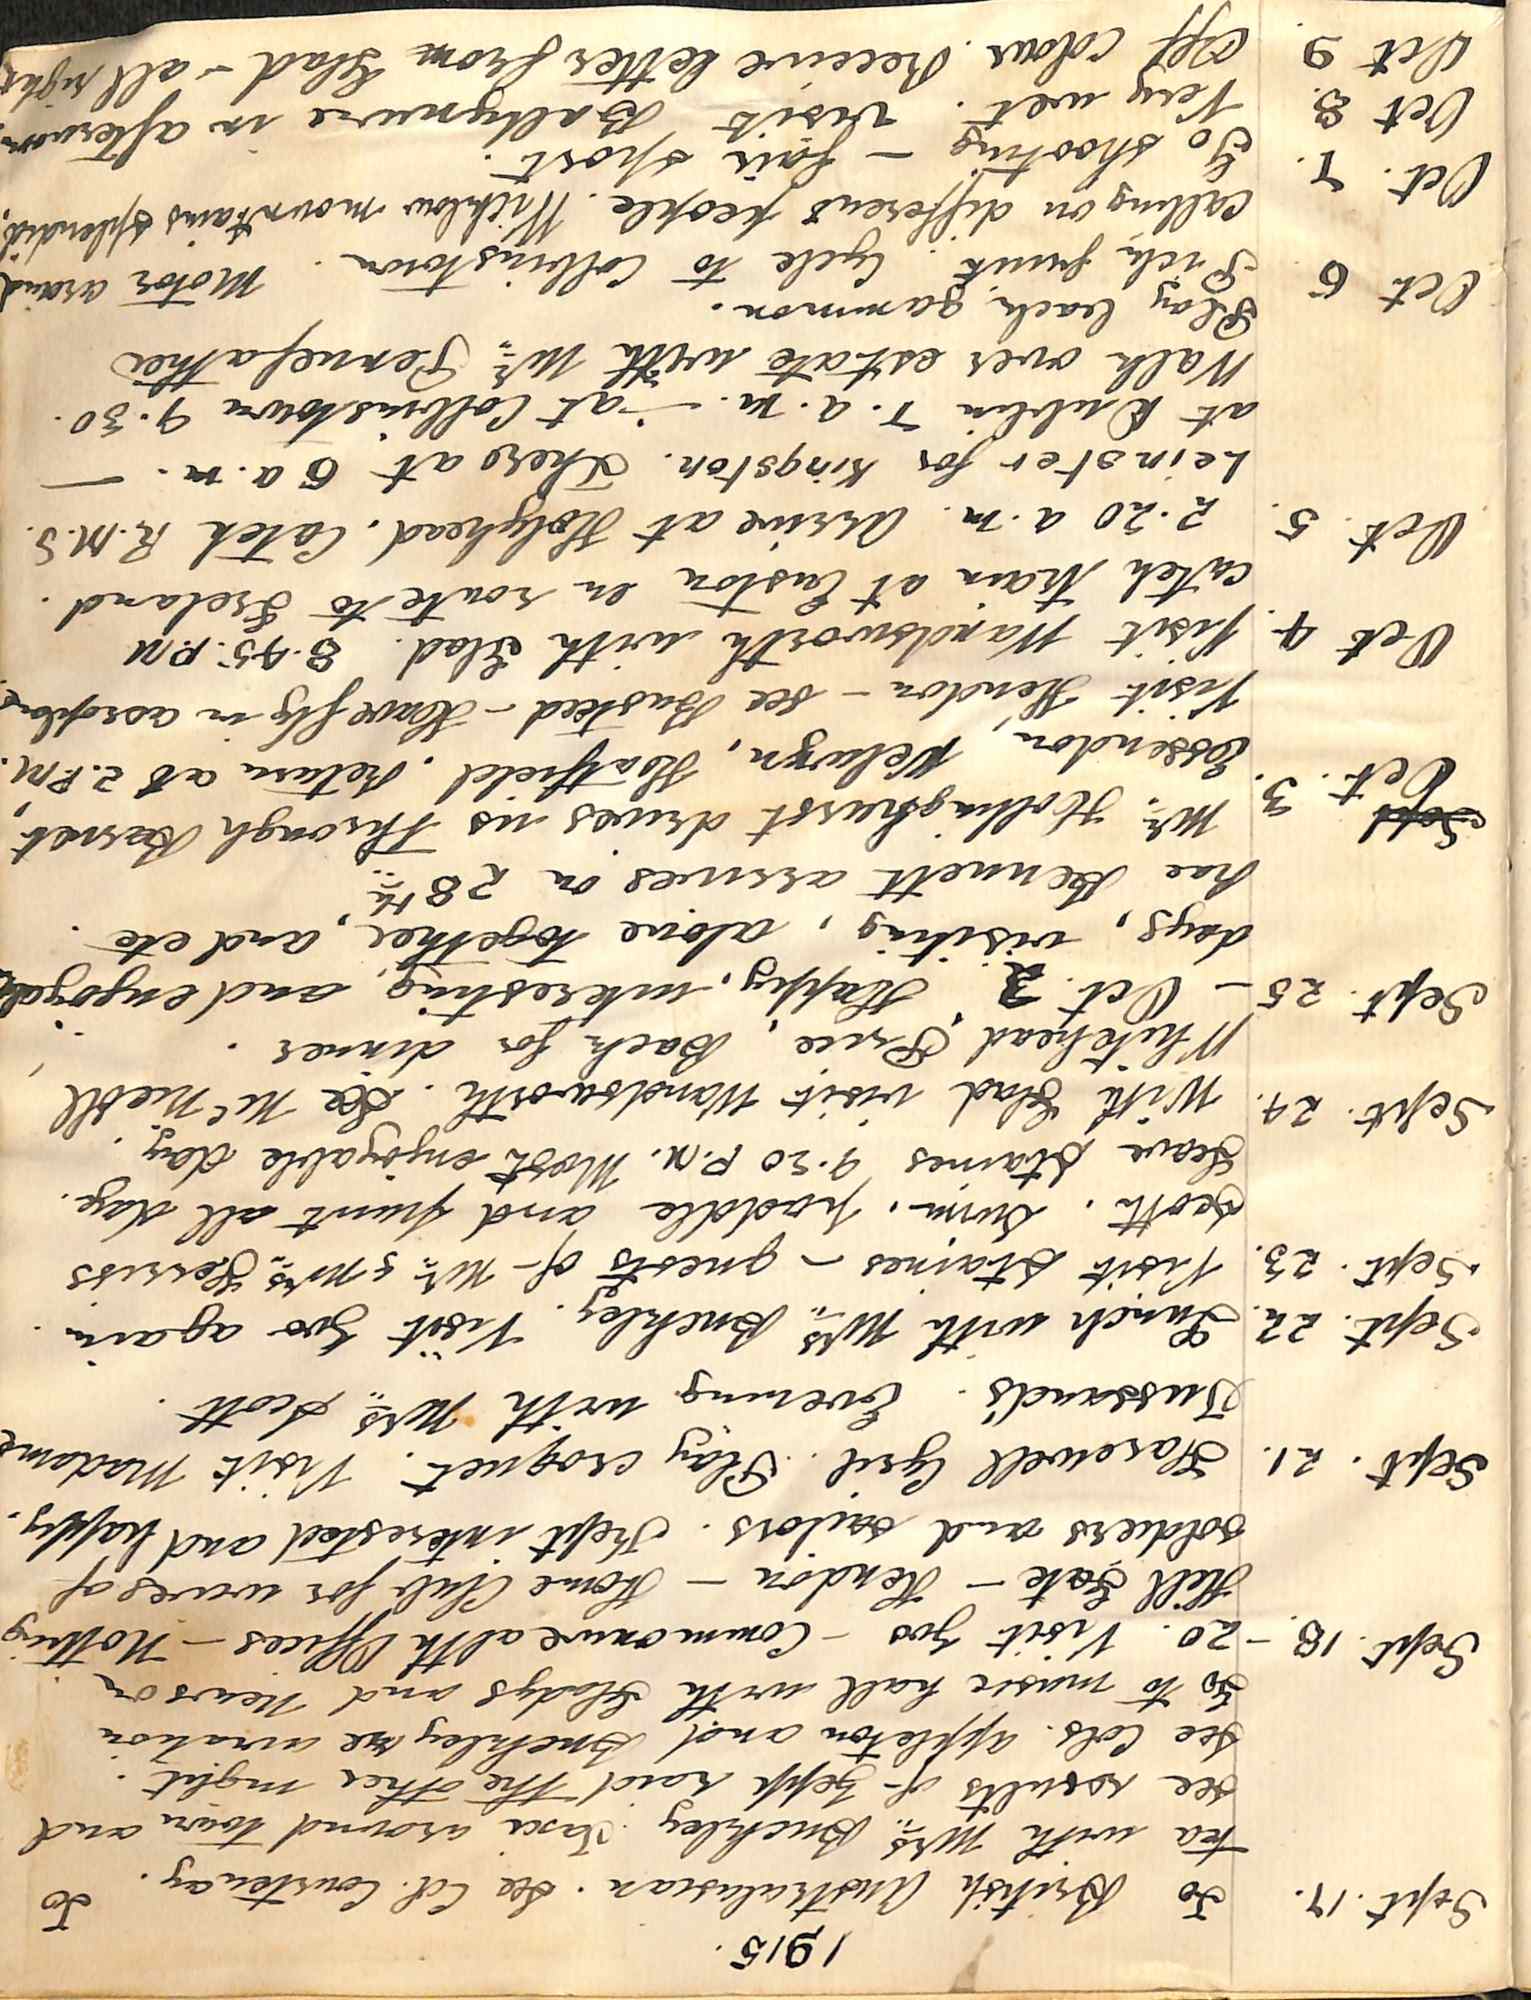 1915.
Sept. 17. To British Australasian. See Col. Courtenay. To
tea with Mrs. Buckley. Taxi around town and
see results of Zepp raid the other night.
See Cols. Appleton and Buckley re aviation
Go to music hall with Gladys and Newson.
Sept. 18 - 20. Visit Zoo - Commonwealth Offices - Notting
Hill Gate - Hendon - Home Club for wives of
soldiers and sailors. Kept interested and happy.
Sept. 21. Farewell Cyril. Play croquet. Visit Madame
Tussand's. Evening with Mrs. Scott.
Sept. 22. Lunch with Mrs. Buckley. Visit Zoo again.
Sept. 23. Visit Staines - guests of Mr. & Mrs. Ferriss
Scott. Swim, paddle and punt all day.
Leave Staines 9.30 P.M. Most enjoyable day.
Sept. 24. With Glad visit Wandsworth. See McNiell
Whitehead Price, Back for dinner.
Sept. 25 - Oct. 2. Happy, interesting, and enjoyable
days, visiting, alone together, and etc.
Rae Bennett arrives on 28th.
Sept Oct. 3. Mr. Hollingshurst drives us through Barnet,
Essendon, Welwyn, Hatfield. Return at 2. P.M.
Visit Hendon - see Busteed - Have fly in aeroplane.
Oct 4. Visit Wandsworth with Glad. 8.45. P.M
catch train at Euston en route to Ireland.
Oct. 5. 2.20 a.m. Arrive at Holyhead. Catch R.M.S.
Leinster for Kingston. There at 6 a.m. -
at Dublin 7. a.m. - at Collinstown 9.30.
Walk over estate with Mr. Pennefather
Play back gammon.
Oct 6 Pick fruit. Cycle to Collinstown. Motor around
calling on different people. Wicklow mountains splendid.
Oct. 7. Go shooting - fair sport.
Oct 8. Very wet. Visit Ballynure in afternoon.
Oct 9. Off colour. Receive letter from Glad - all right